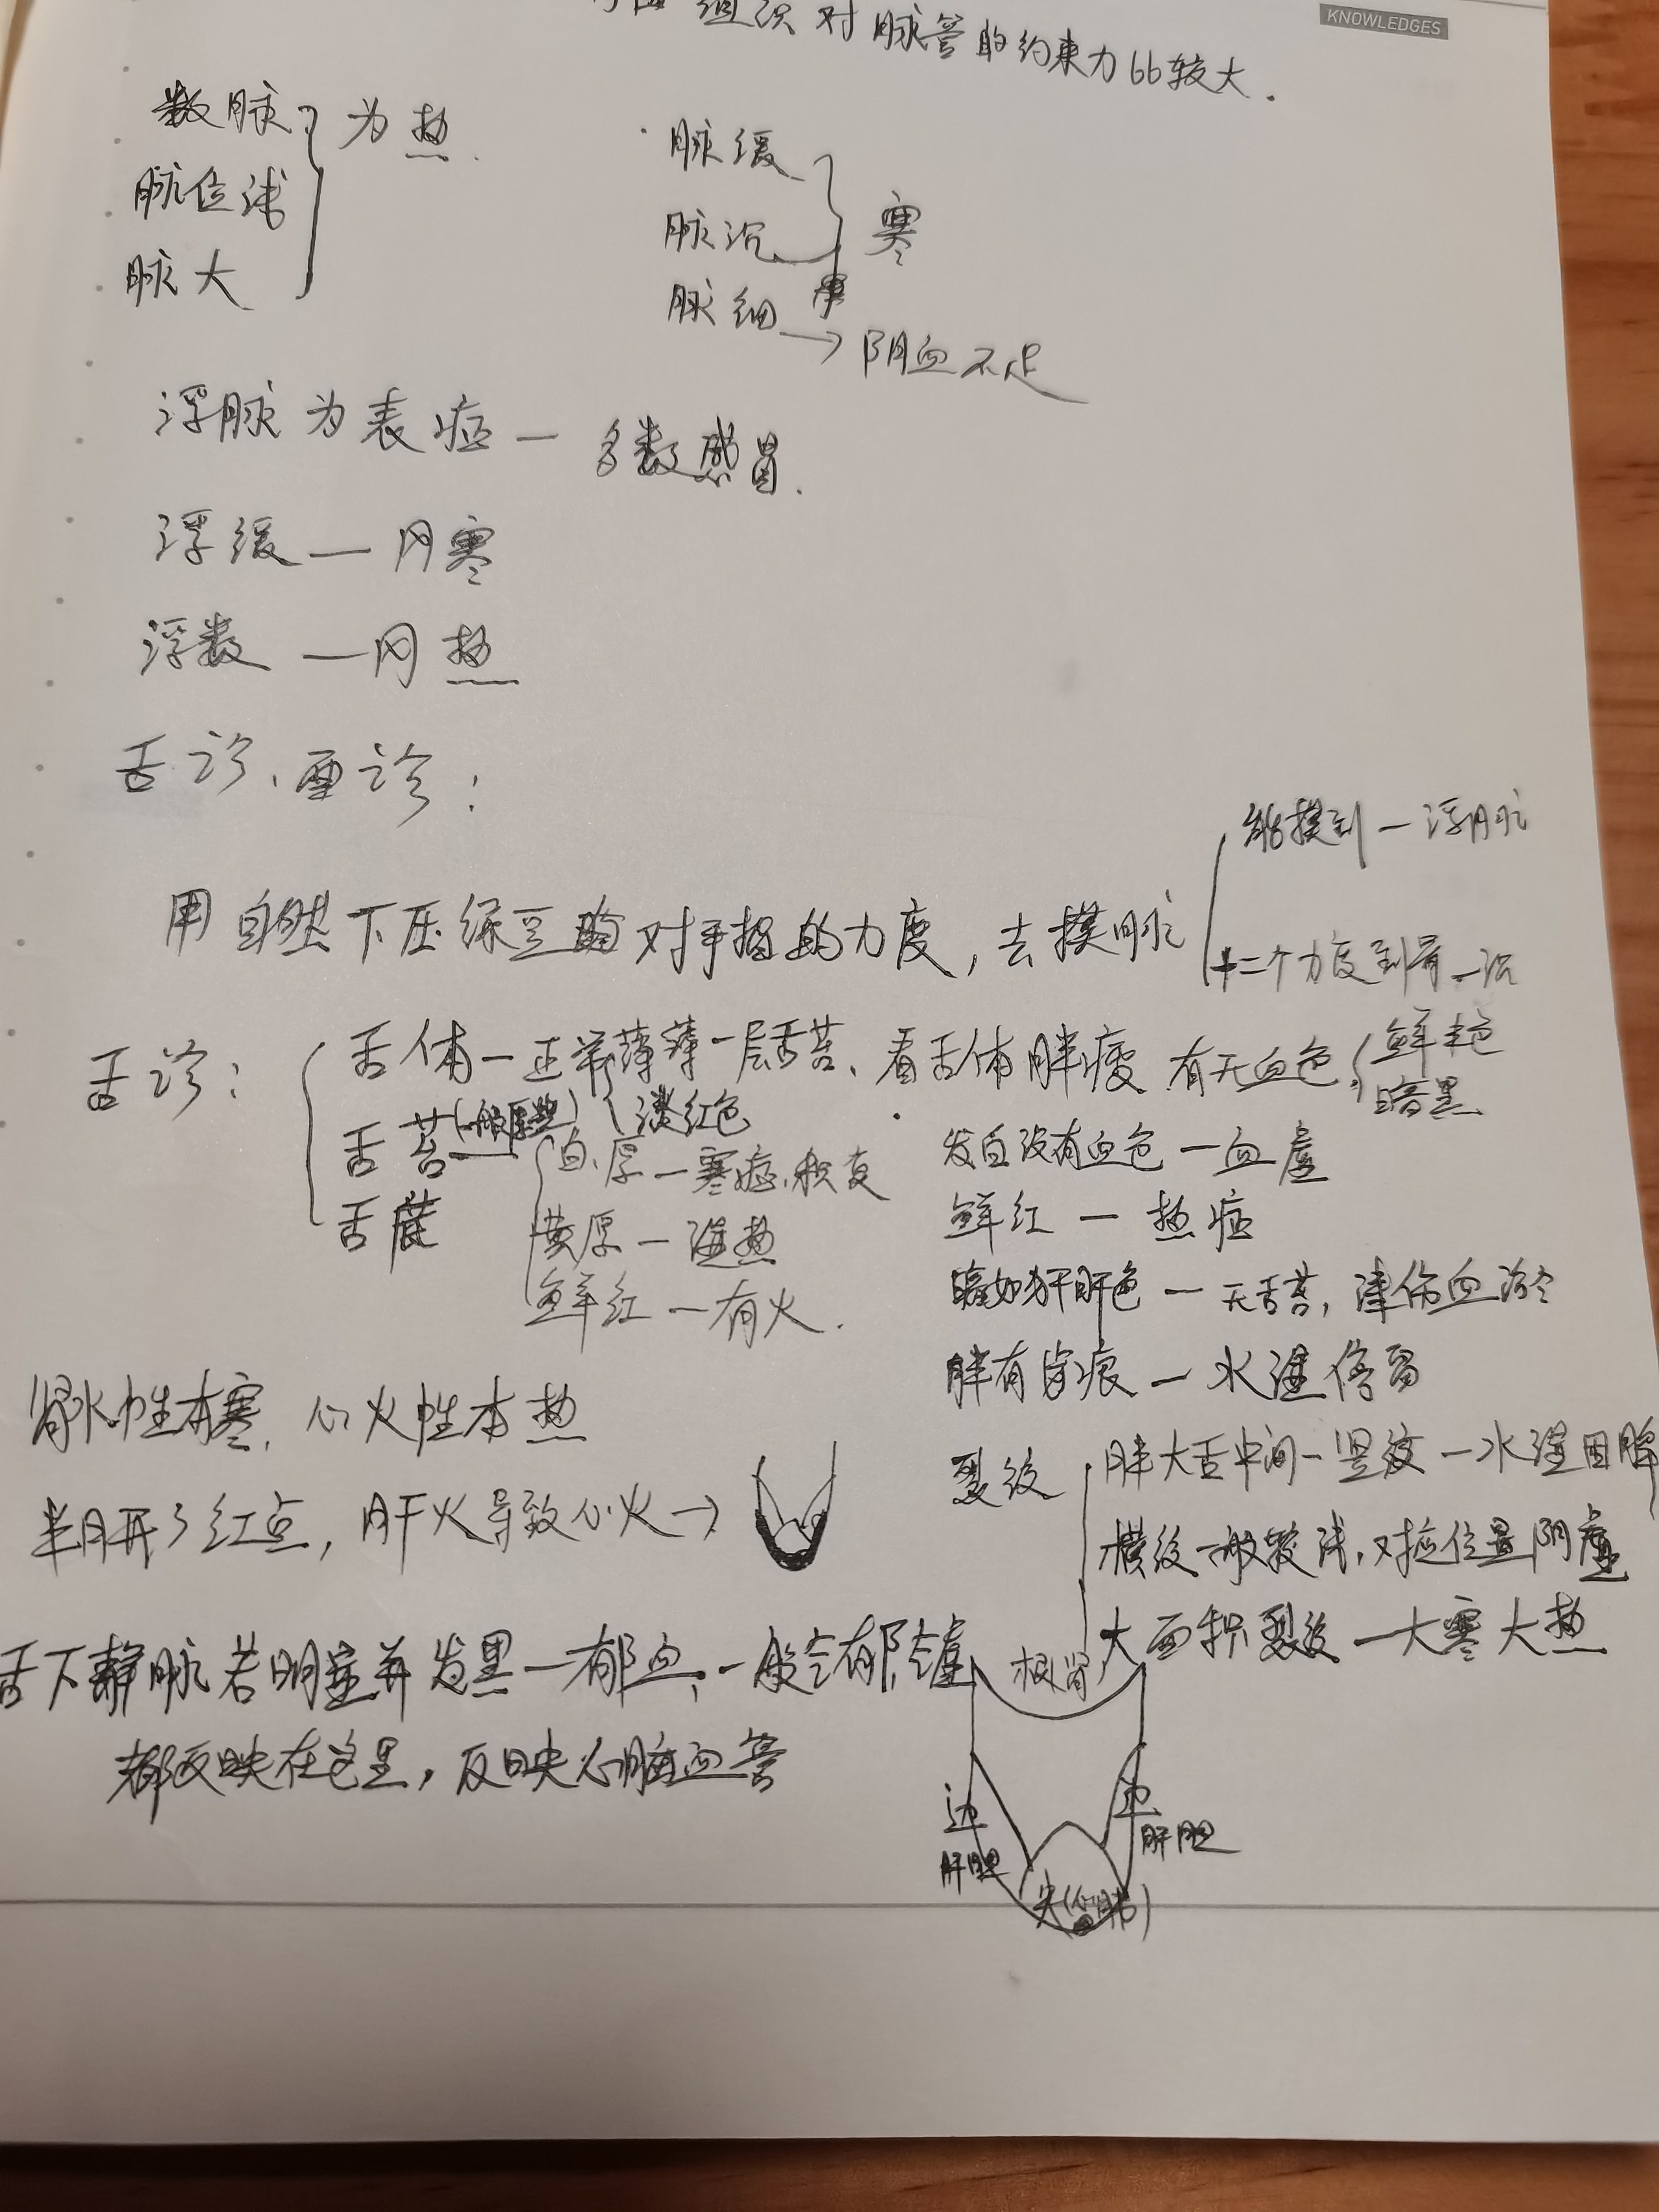 KNOWLEDGES
组织对脉管的约束力比较大.
数脉
脉位浅
脉大
为热.
脉缓
脉沉
寒
脉细 → 阴血不足
浮脉为表症 — 多数感冒.
浮缓 — 风寒
浮数 — 风热
舌诊、面诊:
用自然下压绿豆 对手指的力度, 去摸脉
能摸到 — 浮脉
十二个力度到骨 — 沉
舌诊:
舌体 — 正常薄薄一层舌苔、看舌体胖瘦 有无血色
淡红色
鲜艳
暗黑
舌苔
白、厚 — 寒症、积食
黄厚 — 湿热
鲜红 — 有火.
舌底
发白没有血色 — 血虚
鲜红 — 热症
暗如猪肝色 — 无舌苔, 津伤血
胖有齿痕 — 水湿停留
裂纹
胖大舌中间一竖纹 — 水湿困脾
横纹一般较浅, 对应位置阴虚
大面积裂纹 — 大寒大热
肾水性本寒, 心火性本热
半月形了红点, 肝火导致心火 →
舌下静脉若明显并发黑 — 郁血, 一般会有瘀
都反映在这里, 反映心脑血管
根 肾
边
肝胆
边
肝胆
尖(心肺)